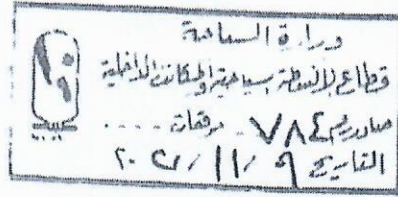 وزارة السياحة
قطاع الأنشطة السياحية والمكاتب الداخلية
صادر رقم ٧٨٤ مرفقات ....
التاريخ ٩ / ١١ / ٢٠